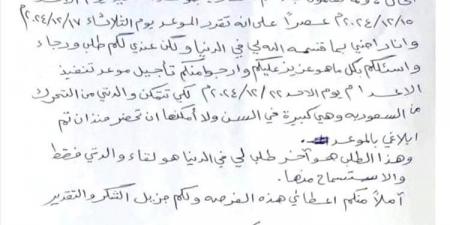 ٢٠٢٤/١٢/١٥م عصراً على انه تقرر الموعد يوم الثلاثاء ٢٠٢٤/١٢/١٧م
وانا راضي بما قسمه الله لي في الدنيا ولكن عندي لكم طلب ورجاء
واسئلكم بكل ما هو عزيز عليكم وارجوا منكم تأجيل موعد تنفيذ
الاعدام يوم الاحد ٢٠٢٤/١٢/٢٢م لكي تتمكن والدتي من التحرك
من السعوديه وهي كبيرة في السن ولا أمكنها ان تحضر منذ ان تم
ابلاغي بالموعد
وهذا الطلب هو آخر طلب لي في الدنيا هو لقاء والدتي فقط
والاستسماح منها.
آملاً منكم اعطائي هذه الفرصه ولكم جزيل الشكر والتقدير